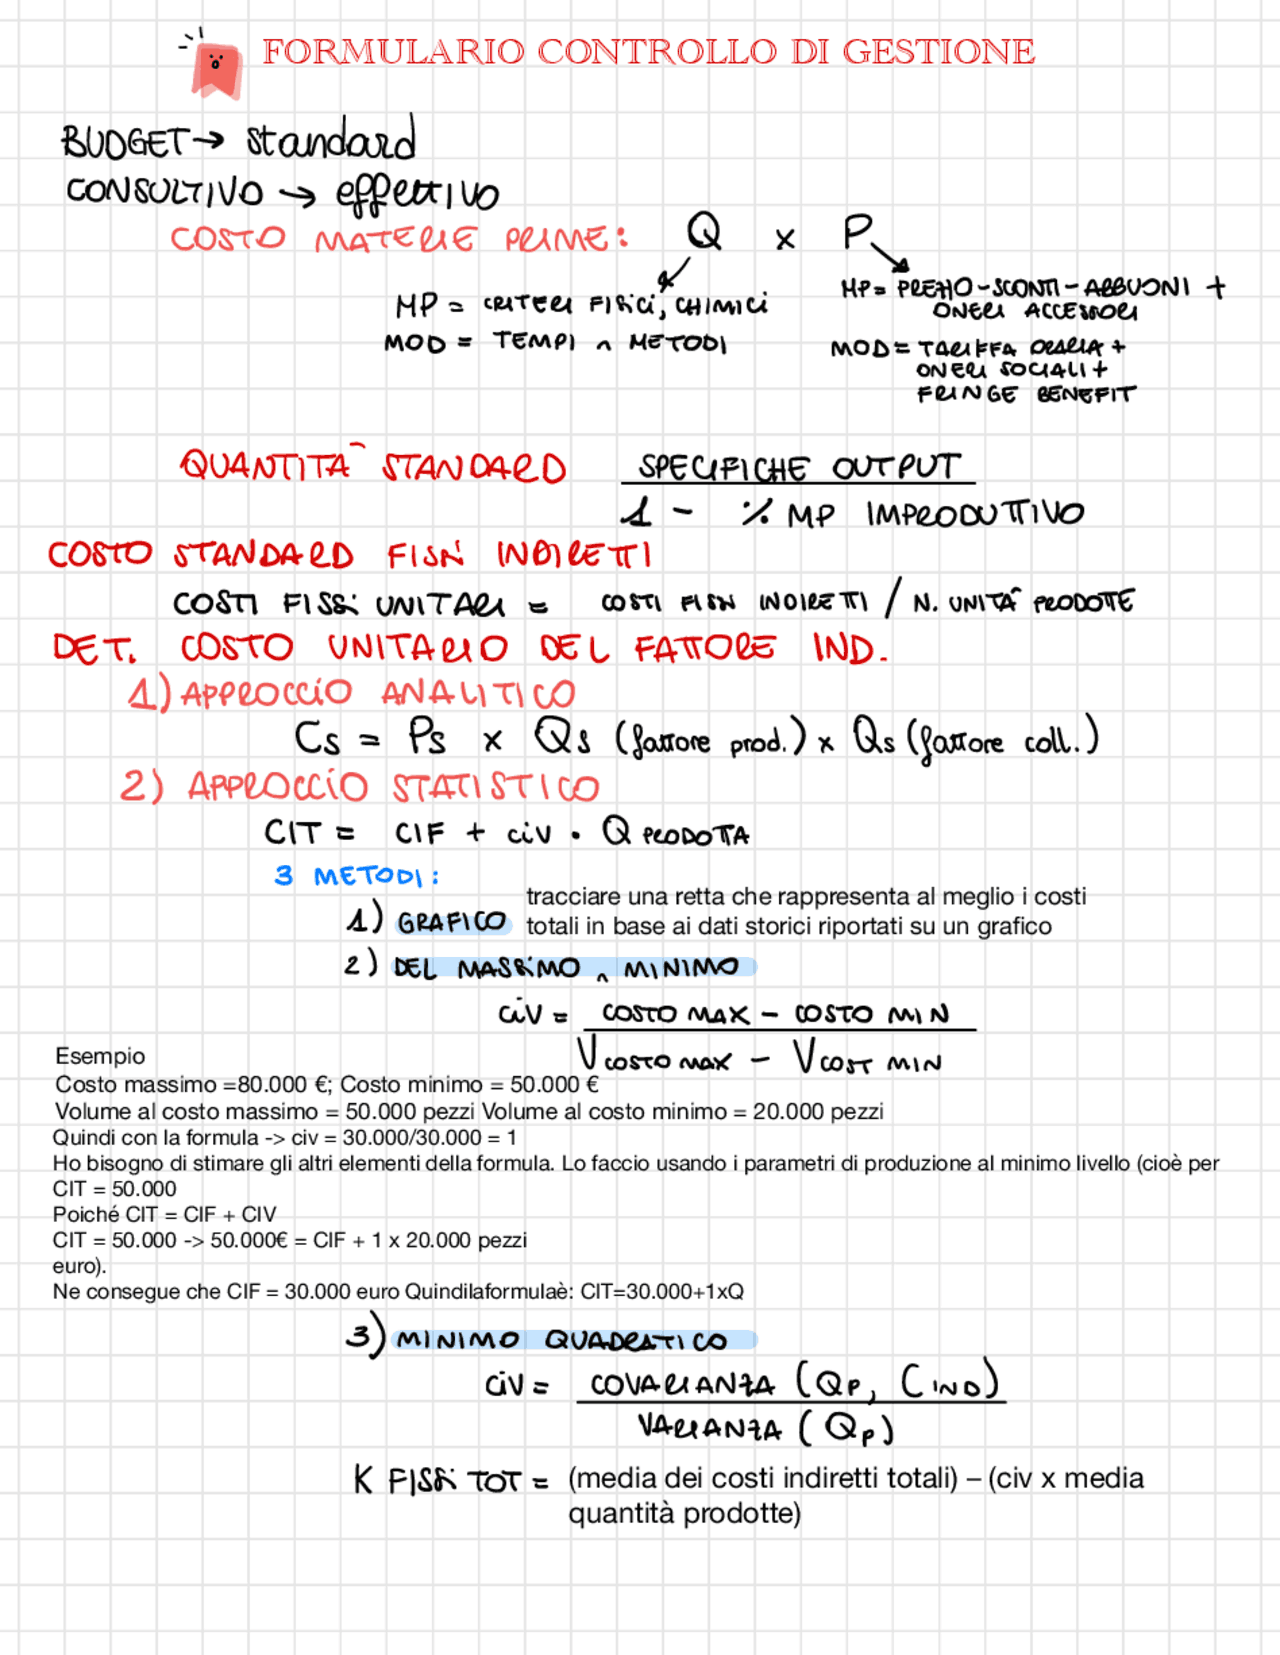 FORMULARIO CONTROLLO DI GESTIONE
BUDGET → standard
CONSULTIVO → effettivo
COSTO MATERIE PRIME: Q x P
MP = CRITERI FISICI, CHIMICI
MOD = TEMPI ^ METODI
MP = PREZZO - SCONTI - ABBUONI +
ONERI ACCESSORI
MOD = TARIFFA ORARIA +
ONERI SOCIALI +
FRINGE BENEFIT
QUANTITÀ STANDARD SPECIFICHE OUTPUT
1 - % MP IMPRODUTTIVO
COSTO STANDARD FISSI INDIRETTI
COSTI FISSI UNITARI = COSTI FISSI INDIRETTI / N. UNITÀ PRODOTTE
DET. COSTO UNITARIO DEL FATTORE IND.
1) APPROCCIO ANALITICO
Cs = Ps x Qs (fattore prod.) x Qs (fattore coll.)
2) APPROCCIO STATISTICO
CIT = CIF + civ · Q PRODOTTA
3 METODI:
1) GRAFICO tracciare una retta che rappresenta al meglio i costi
totali in base ai dati storici riportati su un grafico
2) DEL MASSIMO ^ MINIMO
civ = COSTO MAX - COSTO MIN
V COSTO MAX - V COST MIN
Esempio
Costo massimo =80.000 €; Costo minimo = 50.000 €
Volume al costo massimo = 50.000 pezzi Volume al costo minimo = 20.000 pezzi
Quindi con la formula -> civ = 30.000/30.000 = 1
Ho bisogno di stimare gli altri elementi della formula. Lo faccio usando i parametri di produzione al minimo livello (cioè per
CIT = 50.000
Poiché CIT = CIF + CIV
CIT = 50.000 -> 50.000€ = CIF + 1 x 20.000 pezzi
euro).
Ne consegue che CIF = 30.000 euro Quindilaformulaè: CIT=30.000+1xQ
3) MINIMO QUADRATICO
civ = COVARIANZA (QP, C IND)
VARIANZA (QP)
K FISSI TOT = (media dei costi indiretti totali) – (civ x media
quantità prodotte)